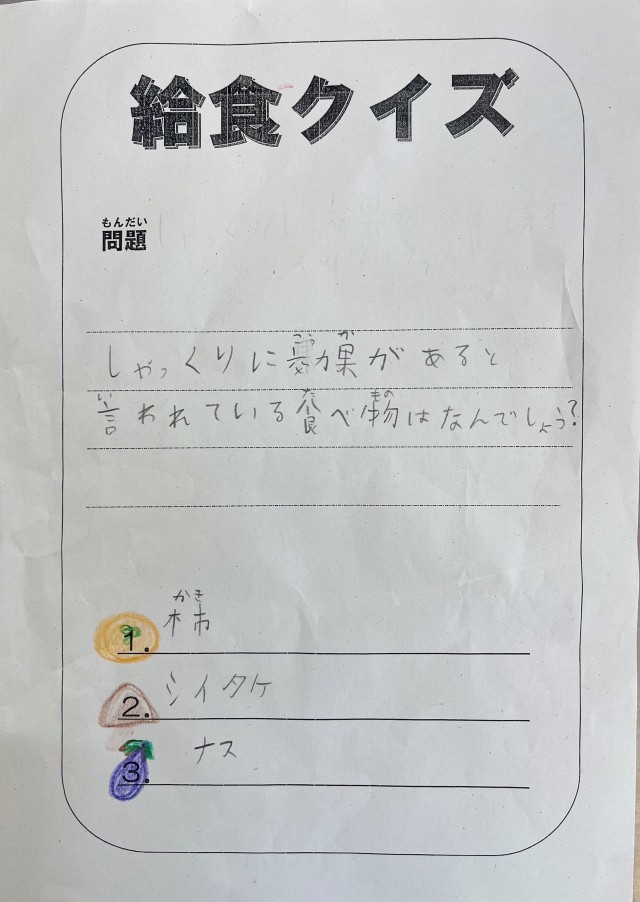 給食クイズ
もんだい
問題
こう か
しゃっくりに効果があると
い た もの
言われている食べ物はなんでしょう?
かき
1. 柿
2. シイタケ
3. ナス